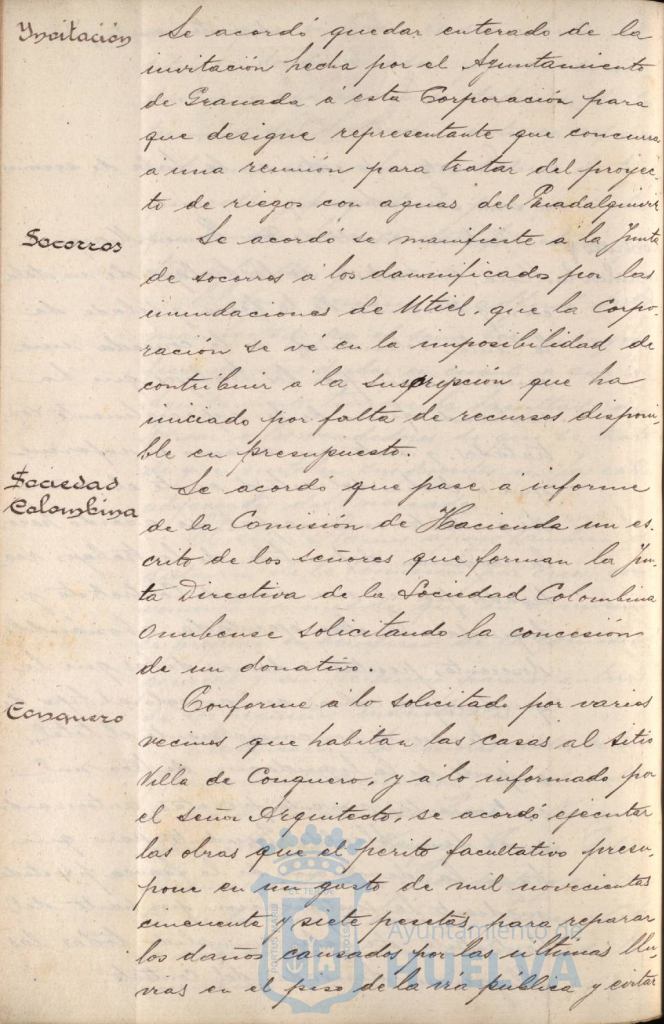 Invitación
Se acordó quedar enterado de la
invitación hecha por el Ayuntamiento
de Granada á esta Corporación para
que designe representante que concurra
á una reunión para tratar del proyec-
to de riegos con aguas del Guadalquivir
Socorros
Se acordó se manifieste á la Junta
de socorros á los damnificados por las
inundaciones de Utiel, que la Corpo-
ración se vé en la imposibilidad de
contribuir á la suscripción que ha
iniciado por falta de recursos disponi-
ble en presupuesto.
Sociedad
Colombina
Se acordó que pase á informe
de la Comisión de Hacienda un es-
crito de los señores que forman la Jun-
ta Directiva de la Sociedad Colombina
Onubense solicitando la concesión
de un donativo.
Conquero
Conforme á lo solicitado por varios
vecinos que habitan las casas al sitio
Villa de Conquero, y á lo informado por
el señor Arquitecto, se acordó ejecutar
las obras que el perito facultativo presu-
pone en un gasto de mil novecientas
cincuenta y siete pesetas, para reparar
los daños causados por las últimas llu-
vias en el piso de la via pública y evitar
Ayuntamiento de
HUELVA